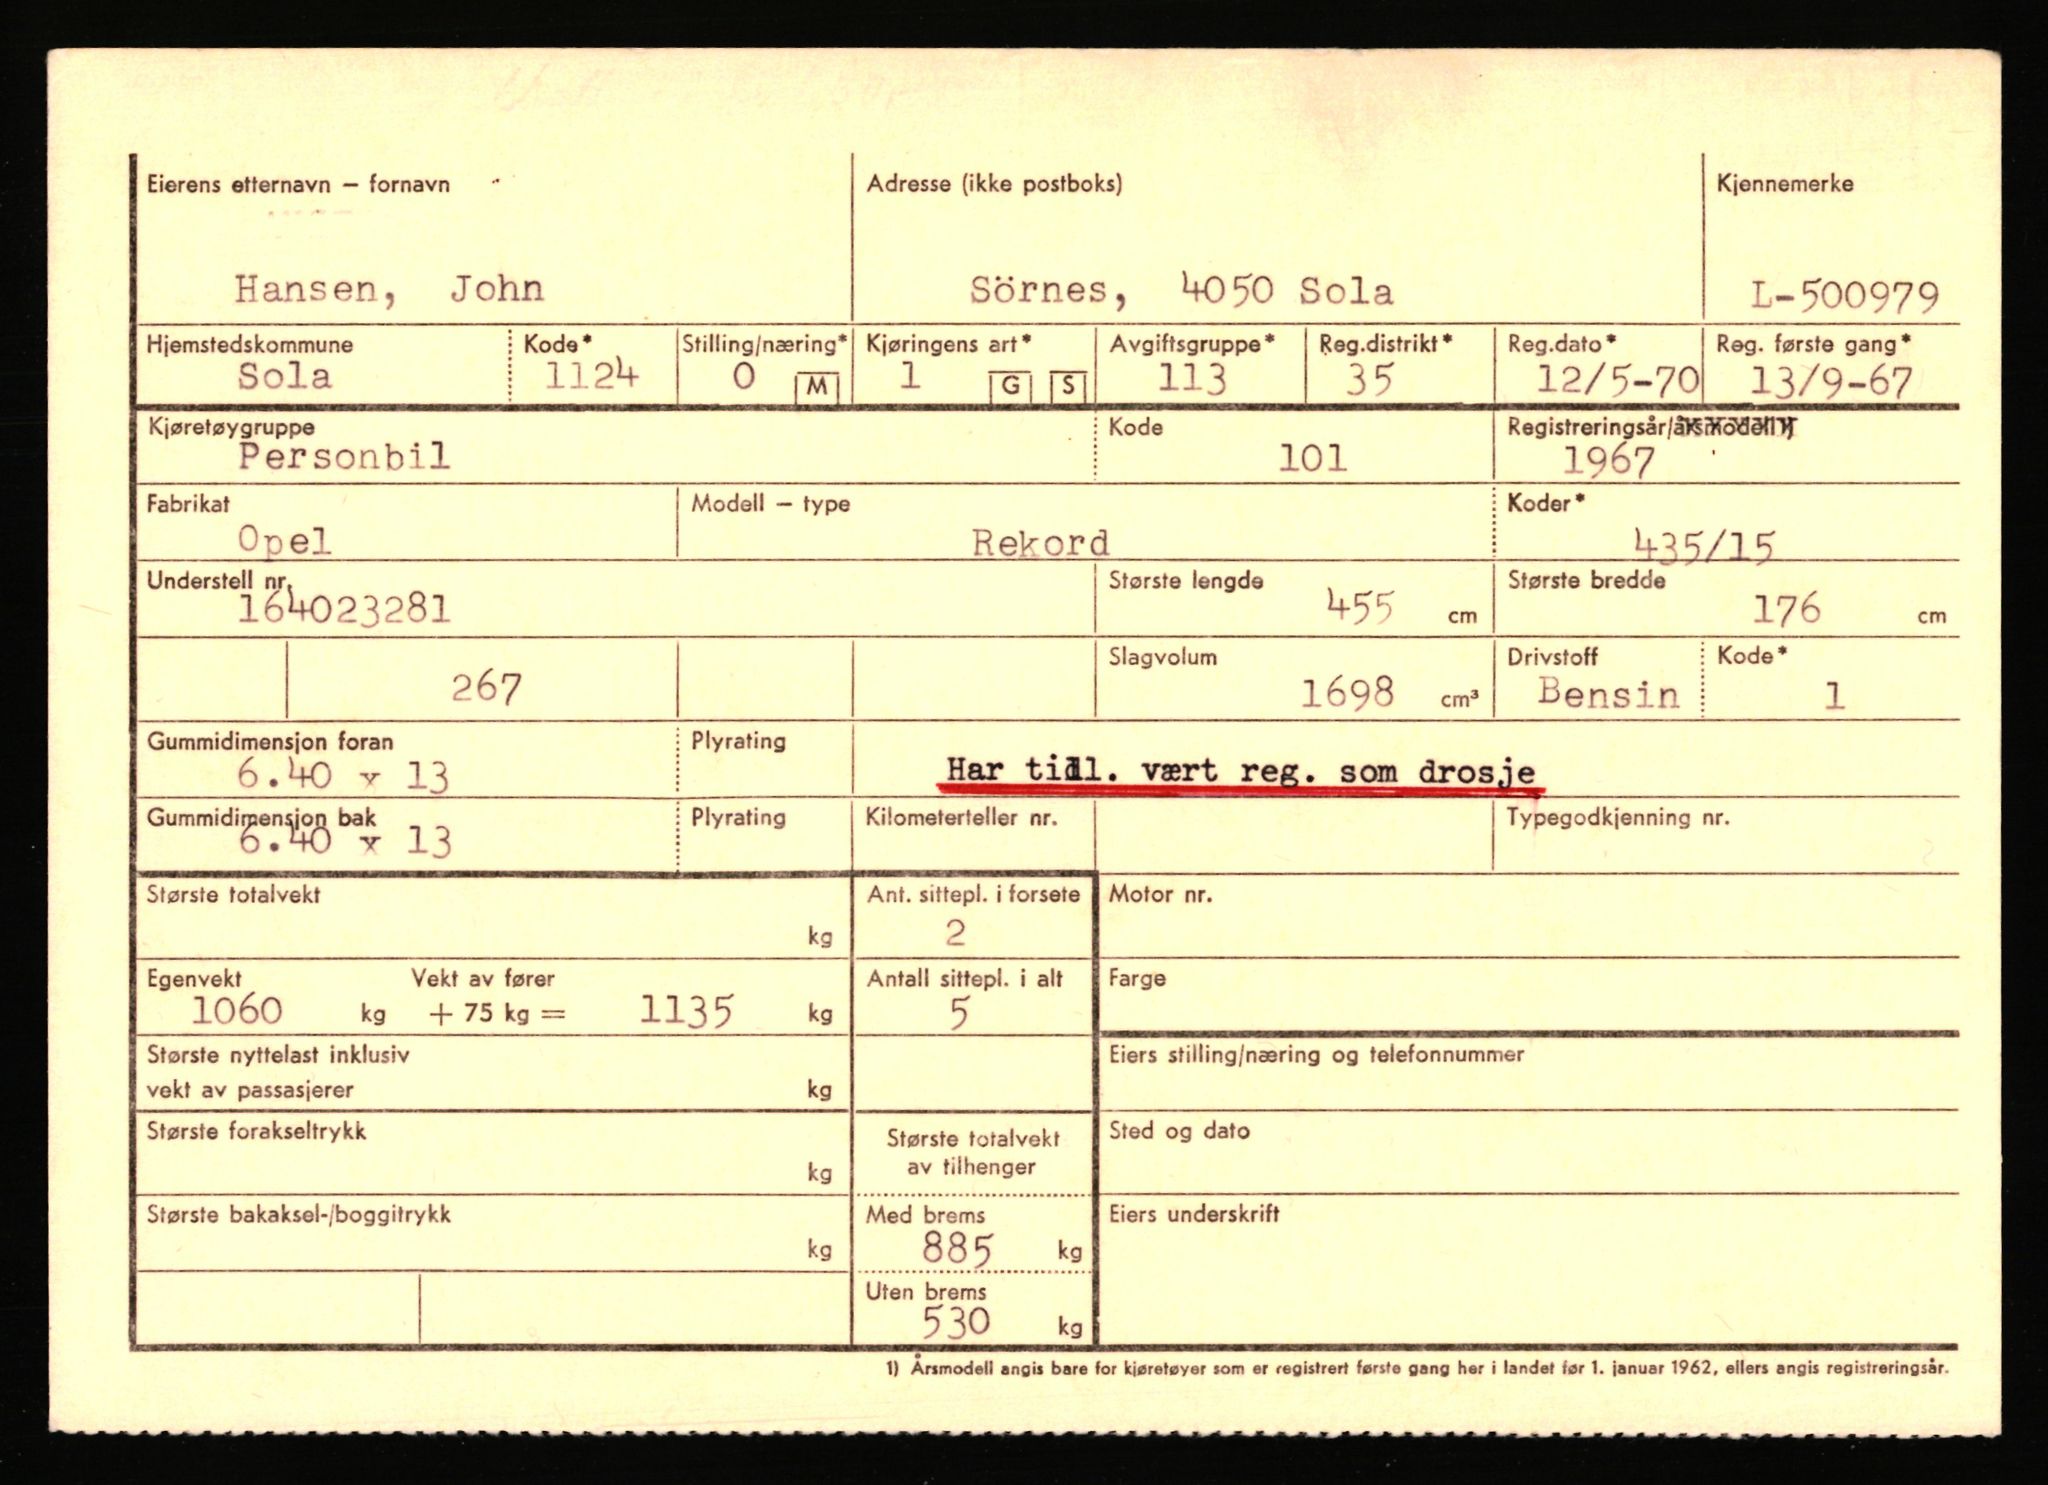 Eierens etternavn – fornavn Adresse (ikke postboks) Kjennemerke
Hansen, John Sörnes, 4050 Sola L-500979
Hjemstedskommune Kode* Stilling/næring* Kjøringens art* Avgiftsgruppe* Reg.distrikt* Reg.dato* Reg. første gang*
Sola 1124 0 M 1 G S 113 35 12/5-70 13/9-67
Kjøretøygruppe Kode Registreringsår/årsmodell 1)
Personbil 101 1967
Fabrikat Modell – type Koder*
Opel Rekord 435/15
Understell nr. Største lengde Største bredde
164023281 455 cm 176 cm
Slagvolum Drivstoff Kode*
267 1698 cm³ Bensin 1
Gummidimensjon foran Plyrating
6.40 x 13 Har tidl. vært reg. som drosje
Gummidimensjon bak Plyrating Kilometerteller nr. Typegodkjenning nr.
6.40 x 13
Største totalvekt Ant. sittepl. i forsete Motor nr.
kg 2
Egenvekt Vekt av fører Antall sittepl. i alt Farge
1060 kg + 75 kg = 1135 kg 5
Største nyttelast inklusiv Eiers stilling/næring og telefonnummer
vekt av passasjerer kg
Største forakseltrykk Største totalvekt Sted og dato
kg av tilhenger
Største bakaksel-/boggitrykk Med brems Eiers underskrift
kg 885 kg
Uten brems
530 kg
1) Årsmodell angis bare for kjøretøyer som er registrert første gang her i landet før 1. januar 1962, ellers angis registreringsår.